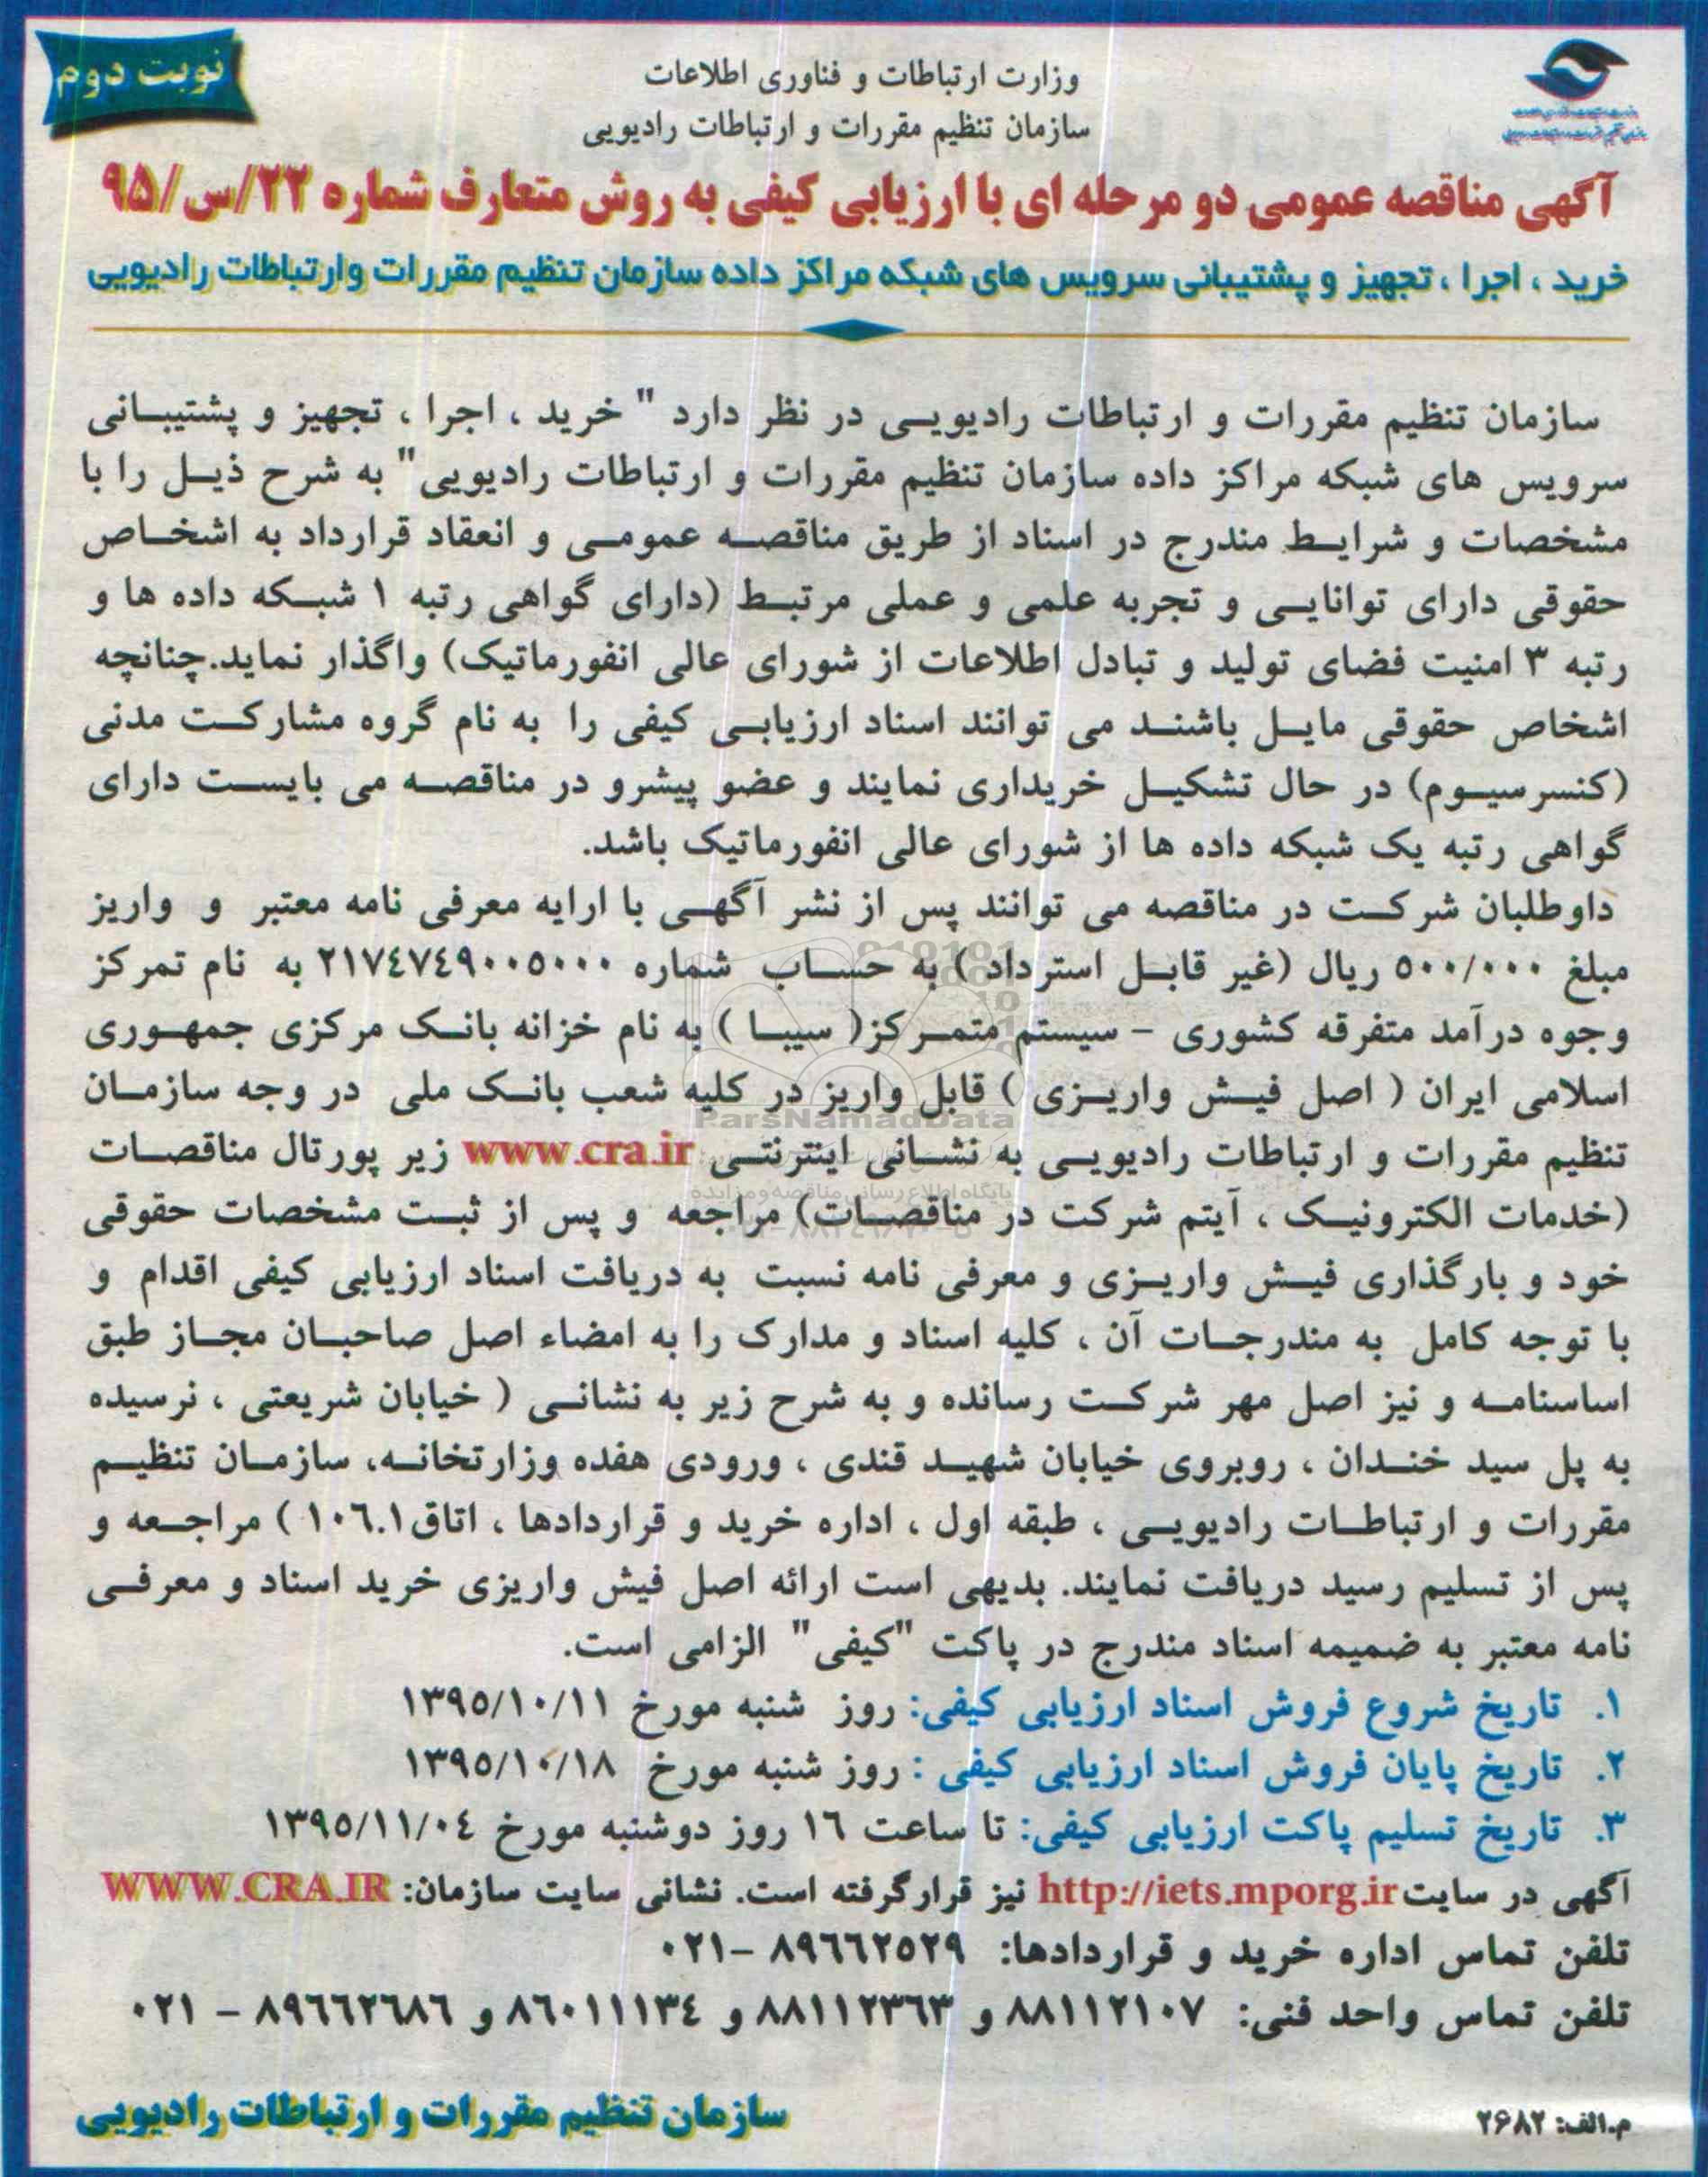 نوبت دوم
وزارت ارتباطات و فناوری اطلاعات
سازمان تنظیم مقررات و ارتباطات رادیویی
آگهی مناقصه عمومی دو مرحله ای با ارزیابی کیفی به روش متعارف شماره ۲۲/س/۹۵
خرید ، اجرا ، تجهیز و پشتیبانی سرویس های شبکه مراکز داده سازمان تنظیم مقررات وارتباطات رادیویی
سازمان تنظیم مقررات و ارتباطات رادیویی در نظر دارد " خرید ، اجرا ، تجهیز و پشتیبانی
سرویس های شبکه مراکز داده سازمان تنظیم مقررات و ارتباطات رادیویی" به شرح ذیل را با
مشخصات و شرایط مندرج در اسناد از طریق مناقصه عمومی و انعقاد قرارداد به اشخاص
حقوقی دارای توانایی و تجربه علمی و عملی مرتبط (دارای گواهی رتبه ۱ شبکه داده ها و
رتبه ۳ امنیت فضای تولید و تبادل اطلاعات از شورای عالی انفورماتیک) واگذار نماید.چنانچه
اشخاص حقوقی مایل باشند می توانند اسناد ارزیابی کیفی را به نام گروه مشارکت مدنی
(کنسرسیوم) در حال تشکیل خریداری نمایند و عضو پیشرو در مناقصه می بایست دارای
گواهی رتبه یک شبکه داده ها از شورای عالی انفورماتیک باشد.
داوطلبان شرکت در مناقصه می توانند پس از نشر آگهی با ارایه معرفی نامه معتبر و واریز
مبلغ ۵۰۰/۰۰۰ ریال (غیر قابل استرداد ) به حساب شماره ۲۱۷٤۷٤۹۰۰۵۰۰۰ به نام تمرکز
وجوه درآمد متفرقه کشوری - سیستم متمرکز( سیبا ) به نام خزانه بانک مرکزی جمهوری
اسلامی ایران ( اصل فیش واریزی ) قابل واریز در کلیه شعب بانک ملی در وجه سازمان
ParsNamadData
تنظیم مقررات و ارتباطات رادیویی به نشانی اینترنتی www.cra.ir زیر پورتال مناقصات
پایگاه اطلاع رسانی مناقصه و مزایده
(خدمات الکترونیک ، آیتم شرکت در مناقصات) مراجعه و پس از ثبت مشخصات حقوقی
خود و بارگذاری فیش واریزی و معرفی نامه نسبت به دریافت اسناد ارزیابی کیفی اقدام و
با توجه کامل به مندرجات آن ، کلیه اسناد و مدارک را به امضاء اصل صاحبان مجاز طبق
اساسنامه و نیز اصل مهر شرکت رسانده و به شرح زیر به نشانی ( خیابان شریعتی ، نرسیده
به پل سید خندان ، روبروی خیابان شهید قندی ، ورودی هفده وزارتخانه، سازمان تنظیم
مقررات و ارتباطات رادیویی ، طبقه اول ، اداره خرید و قراردادها ، اتاق۱۰٦.۱ ) مراجعه و
پس از تسلیم رسید دریافت نمایند. بدیهی است ارائه اصل فیش واریزی خرید اسناد و معرفی
نامه معتبر به ضمیمه اسناد مندرج در پاکت "کیفی" الزامی است.
۱. تاریخ شروع فروش اسناد ارزیابی کیفی: روز شنبه مورخ ۱۳۹۵/۱۰/۱۱
۲. تاریخ پایان فروش اسناد ارزیابی کیفی : روز شنبه مورخ ۱۳۹۵/۱۰/۱۸
۳. تاریخ تسلیم پاکت ارزیابی کیفی: تا ساعت ۱٦ روز دوشنبه مورخ ۱۳۹۵/۱۱/۰٤
آگهی در سایت http://iets.mporg.ir نیز قرارگرفته است. نشانی سایت سازمان: WWW.CRA.IR
تلفن تماس اداره خرید و قراردادها: ۸۹٦٦۲۵۲۹ -۰۲۱
تلفن تماس واحد فنی: ۸۸۱۱۲۱۰۷ و ۸۸۱۱۲۳٦۳ و ۸٦۰۱۱۱۳٤ و ۸۹٦٦۲٦۸٦ - ۰۲۱
م.الف: ۲۶۸۲
سازمان تنظیم مقررات و ارتباطات رادیویی